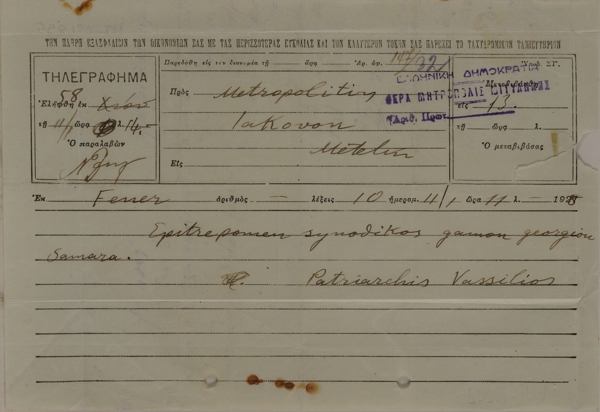 ΤΗΝ ΠΛΗΡΗ ΕΞΑΣΦΑΛΙΣΙΝ ΤΩΝ ΟΙΚΟΝΟΜΙΩΝ ΣΑΣ ΜΕ ΤΑΣ ΠΕΡΙΣΣΟΤΕΡΑΣ ΕΥΚΟΛΙΑΣ ΚΑΙ ΤΟΝ ΚΑΛΥΤΕΡΟΝ ΤΟΚΟΝ ΣΑΣ ΠΑΡΕΧΕΙ ΤΟ ΤΑΧΥΔΡΟΜΙΚΟΝ ΤΑΜΙΕΥΤΗΡΙΟΝ
ΤΗΛΕΓΡΑΦΗΜΑ
58
Ἐλήφθη ἐκ Χίου
τῇ 11/1 ὥρ. λ. 14.-
Ὁ παραλαβὼν
Παρεδόθη εἰς τὸν διανομέα τῇ ὥρ. Ἀρ. ἀπ.
Πρὸς Metropolitin
Iakovon
Metelin
Εἰς
ΕΛΛΗΝΙΚΗ ΔΗΜΟΚΡΑΤΙΑ
ΙΕΡΑ ΜΗΤΡΟΠΟΛΙΣ ΜΙΤΥΛΗΝΗΣ
Ἀριθ. Πρωτ.
εἰς 13.
τῇ ὥρ. λ.
Ὁ μεταβιβάσας
Ἐκ Fener ἀριθμὸς – λέξεις 10 ἡμερομ. 11/1 ὥρα 11 λ. – 192
Epitrepomen synodikos gamon georgiou
Samara.
Patriarchis Vassilios